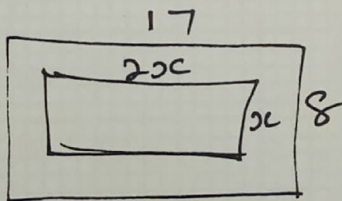 17
2x
x
8